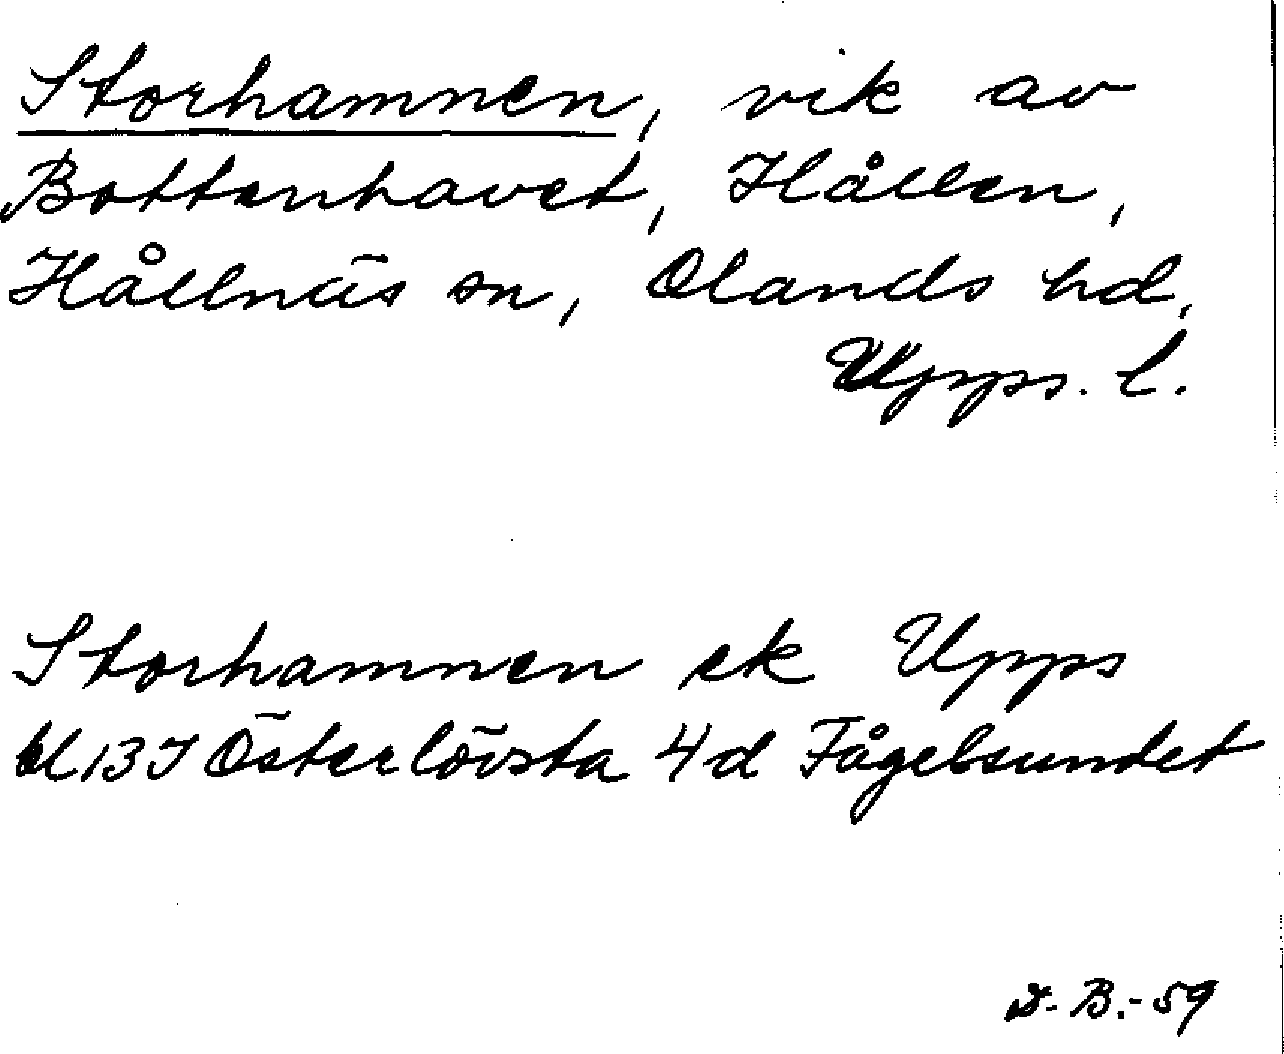 Storhamnen, vik av
Bottenhavet, Hållen,
Hållnäs sn, Olands hd,
Upps. l.
Storhamnen ek Upps
bl 13 I Österlövsta 4d Fågelsundet
B.-59